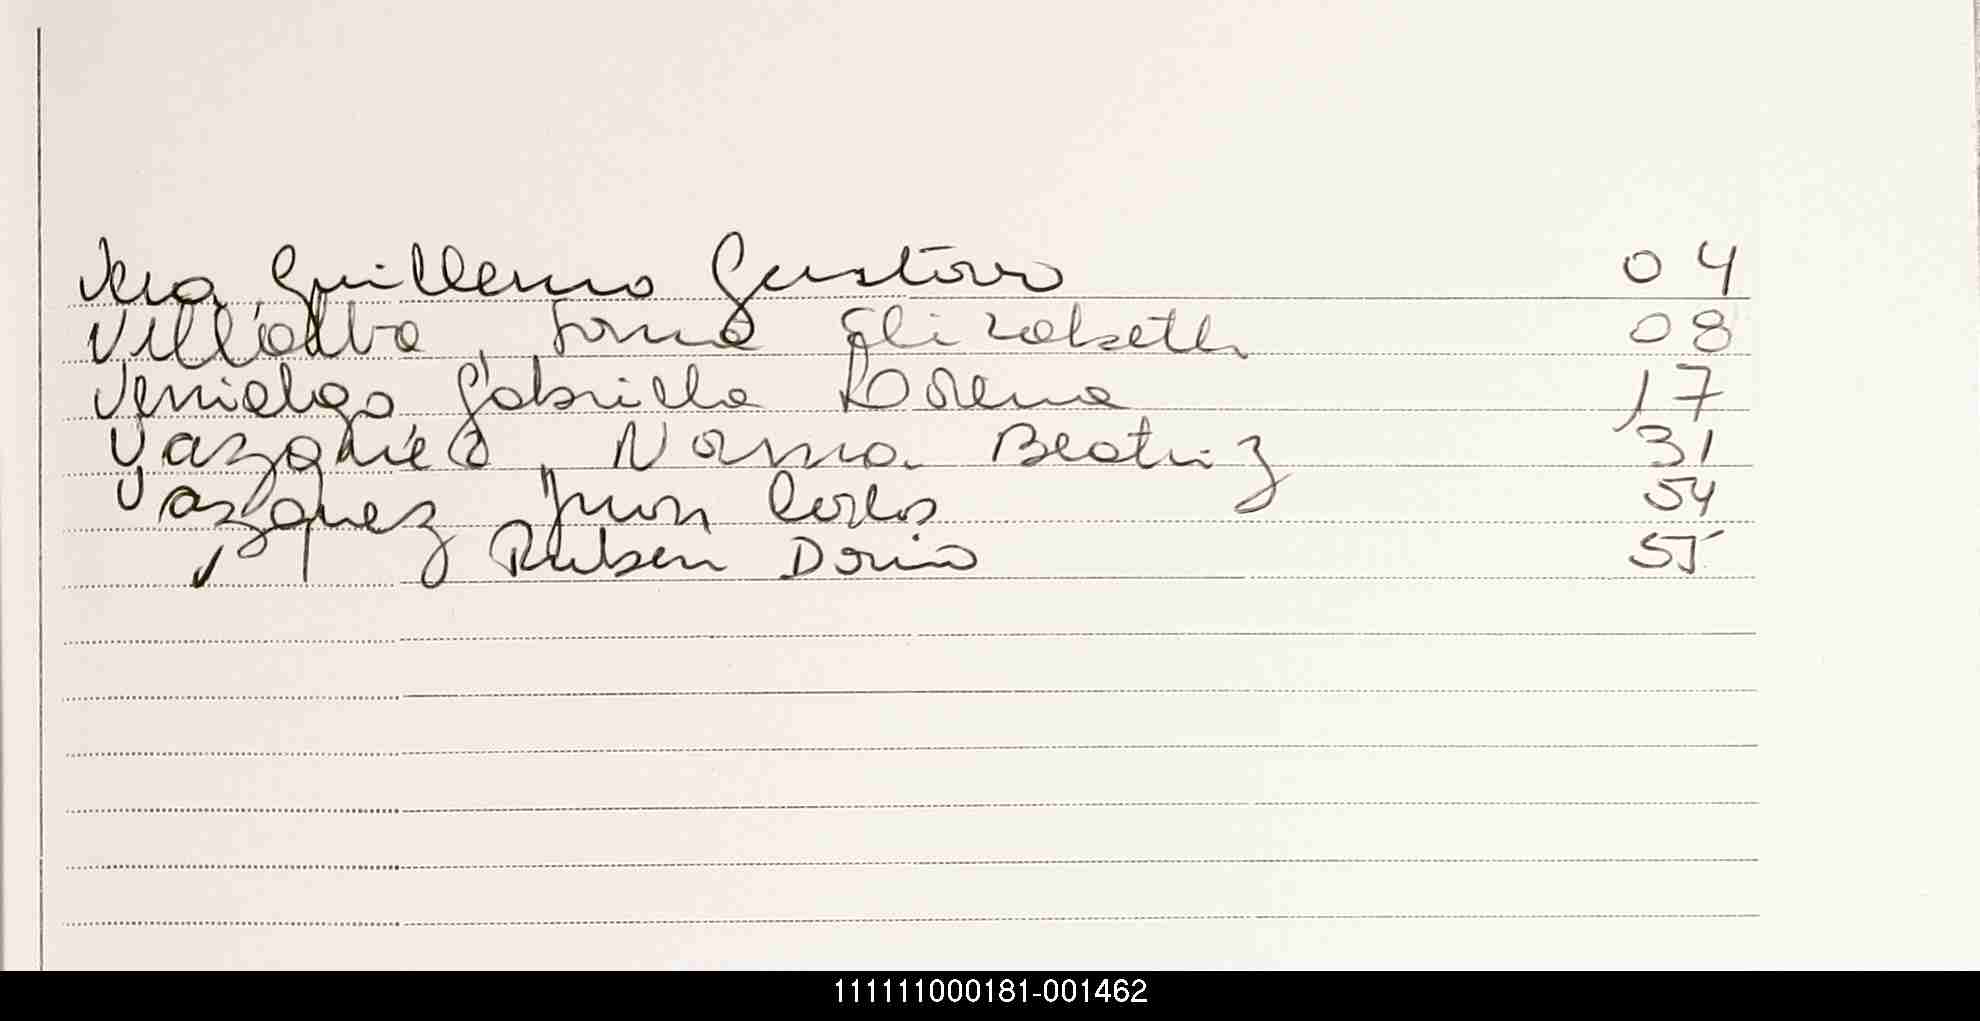 Vera, Guillermo Gustavo 04
Villalba, Elizabeth 08
Venialgo Gabriella Lorena 17
Vazquez, Norma Beatriz 31
Vazquez Juan Carlos 54
" Ruben Dario 55
111111000181-001462